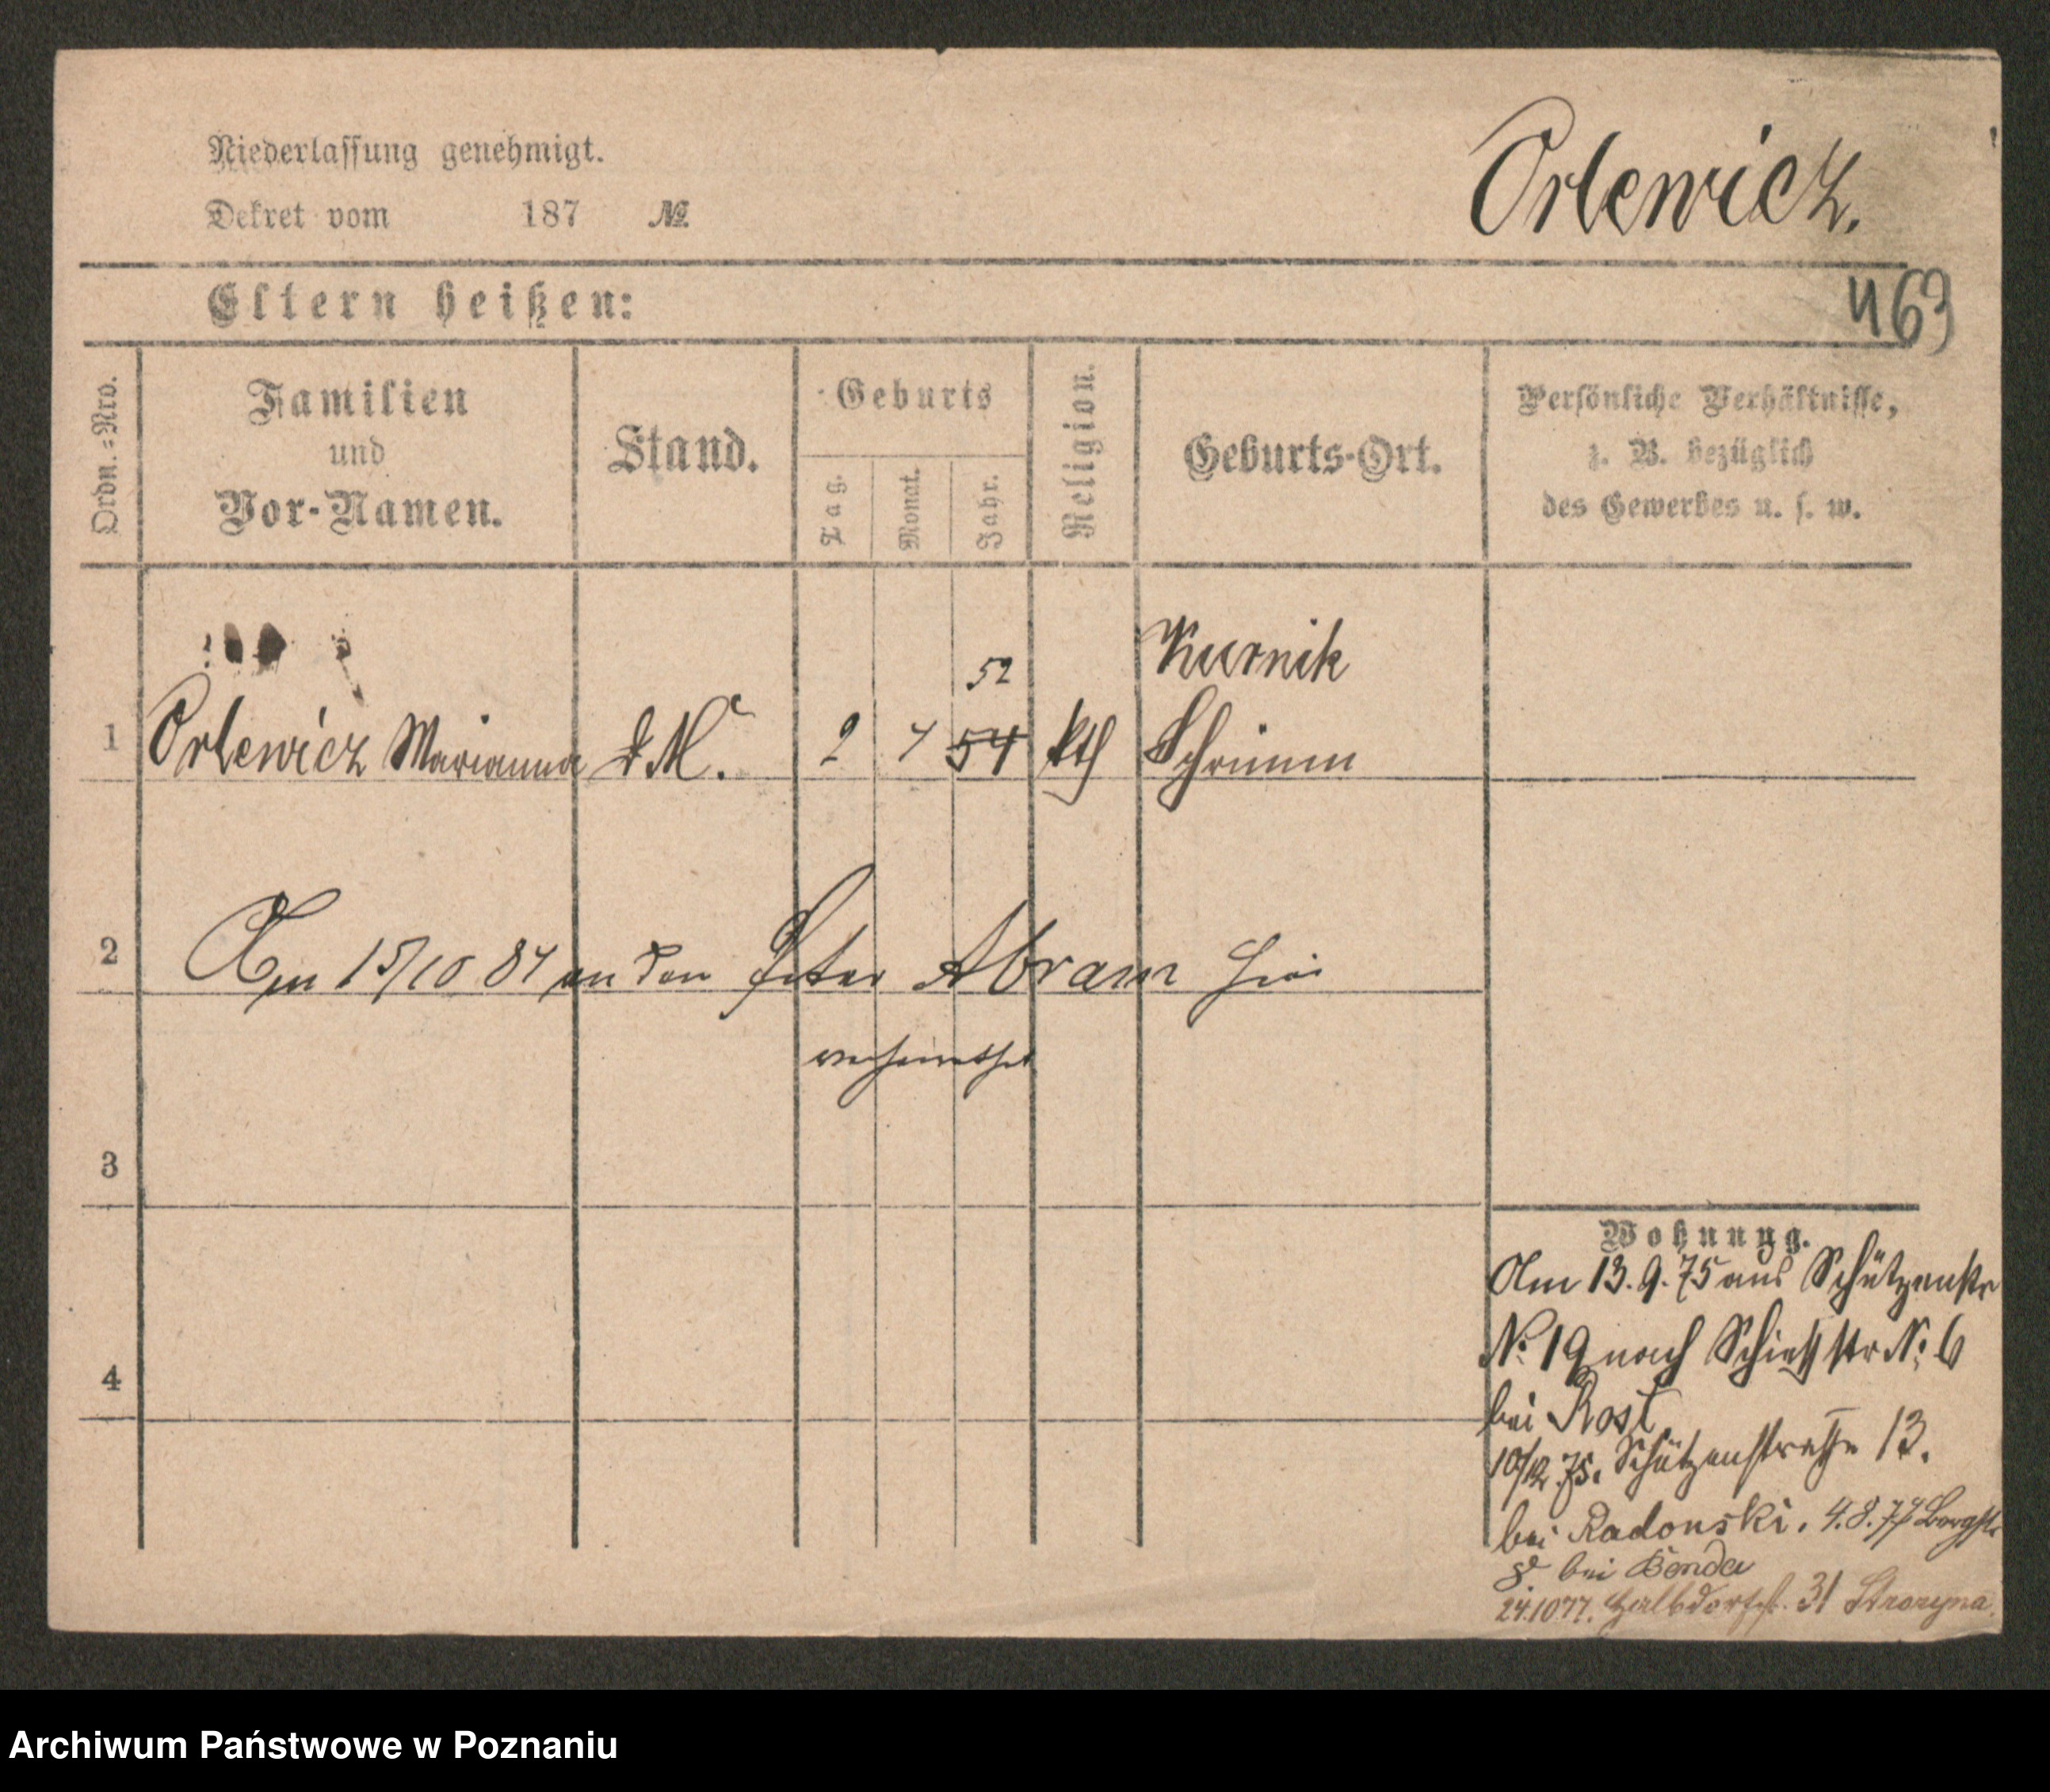 Niederlassung genehmigt.
Dekret vom 187 №
Orlewicz.
Eltern heißen:
463
Ordn.=Nro.
Familien
und
Vor-Namen.
Stand.
Geburts
Tag.
Monat.
Jahr.
Religion.
Geburts-Ort.
Persönliche Verhältnisse,
z. B. bezüglich
des Gewerbes u. s. w.
52
Kurnik
1 Orlewicz Marianna d M. 2 7 54 kth Schrimm
2 Am 15/10 84 an den Peter Abram hier
verheirathet
3
4
Wohnung.
Am 13.9.75 aus Schützenstr
N: 19 nach Schießstr N: 6
bei Rost
10/12 75. Schützenstraße 13.
bei Radonski. 4.8.77 Bergstr
8 bei Benda
24.10 77. Halbdorfst. 31
Archiwum Państwowe w Poznaniu